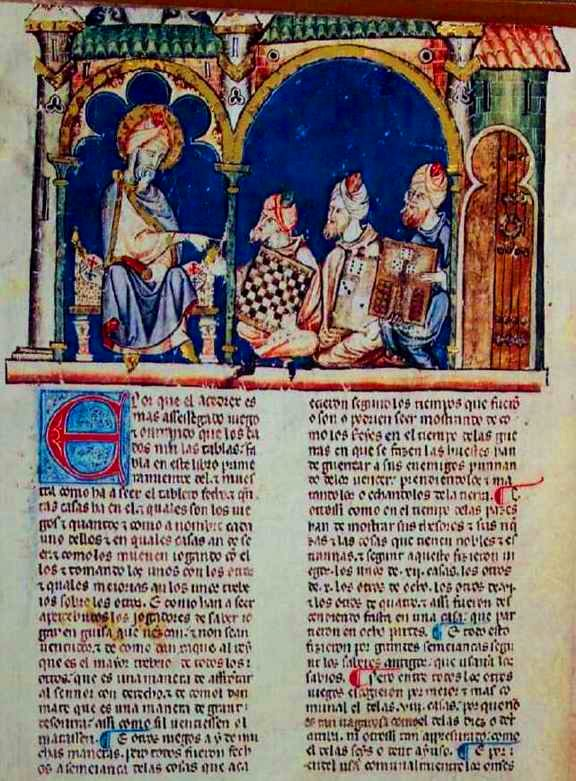 E Por que el acedrex es
mas assessegado iuego
& onrrado que los da
dos nin las tablas; fa
bla en este libro prime
ramientre del. & mues
tra como ha a seer el tablero fecho. & qn
tas casas ha en el. & quales son los iue
gos. & quantos & como a nombre cada
uno dellos & en quales casas an de se
er. & como los mueuen iogando co el
los & tomando los unos con los otros
& quales meiorias an los unos trebe
ios sobre los otros. E como han a seer
apercebudos los iogadores de saber io
gar en guisa que & non sean
uençudos. & de como dan xaque al rey
que es el mayor trebeio de todos los
otros; que es una manera de affrontar
al sennor con derecho. & de comol dan
mate que es una manera de grant
desonrra; assi como sil uenciessen o l
matassen. ¶ E otros iuegos a y de mu
chas maneras. pero todos fueron fech
os a semeiança delas cosas que aca
ecieron segund los tiempos que fuero
o son o podrien seer mostrando de co
mo los reyes en el tiempo delas gue
rras en que se fazen las huestes han
de guerrear a sus enemigos punnan
do delos uencer. prendiendolos & ma
tando los o echandolos dela tierra. ¶ E
otrossi como en el tiempo delas pazes
han de mostrar sus thesoros & sus riq
zas & las cosas que tienen nobles & es
trannas. & segunt aquesto fizieron iu
egos. los unos de .xii. casas. los otros
de .x. los otros de ocho. los otros de .vi.
& los otros de quatro. & assi fueron des
cendiendo fasta en una casa; que par
tieron en ocho partes. ¶ E todo esto
fizieron por grandes semeianças segu
nt los saberes antiguos; que usaron los
sabios. ¶ Pero entre todos los otros
iuegos escogieron por meior & mas co
munal el delas .viii. casas. por quenon
es tan uagaroso comol delas diez o dent
arriba. ni otrossi tan apressurado; como
el delas seys o dent ayuso. ¶ E por
endel usan comunalmientre los omnes